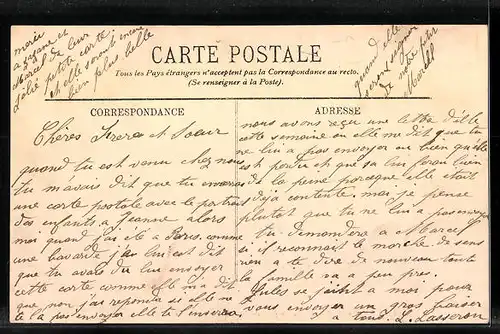 merci
a Jeanne et
Marcel de leur
jolie petite carte
et elle sont encore
bien plus belle
quand elle
de notre petit
Marcel
CARTE POSTALE
Tous les Pays étrangers n'acceptent pas la Correspondance au recto.
(Se renseigner à la Poste).
CORRESPONDANCE
Chères Frere et Soeur
quand tu est venu chez nous
tu mavais dit que tu
une carte postale avec le portrait
des enfants a Jeanne alors
moi quand j'ai été a Paris comme
une bavarde j'ai lui est dit
que tu avais du lui envoyer
cette carte comme elle m'a dit
que non j'ai repondu si elle ne
la pas envoyer elle te l'enverra
ADRESSE
nous avons reçu une lettre d'elle
cette semaine ou elle me dit que tu
ne lui a pas envoyer ou bien qu'elle
est perdu et que sa lui ferai bien
de la peine porceque elle était
déja contente, moi je pense
plutot que tu ne lui a pas envoyer
tu demandera a Marcel
si il reconnait le marché de sens
rien a te dire de nouveau toute
la famille va a peu pres.
Jules se joint a moi pour
vous envoyer un gros baiser
a tous. L. Lasseron